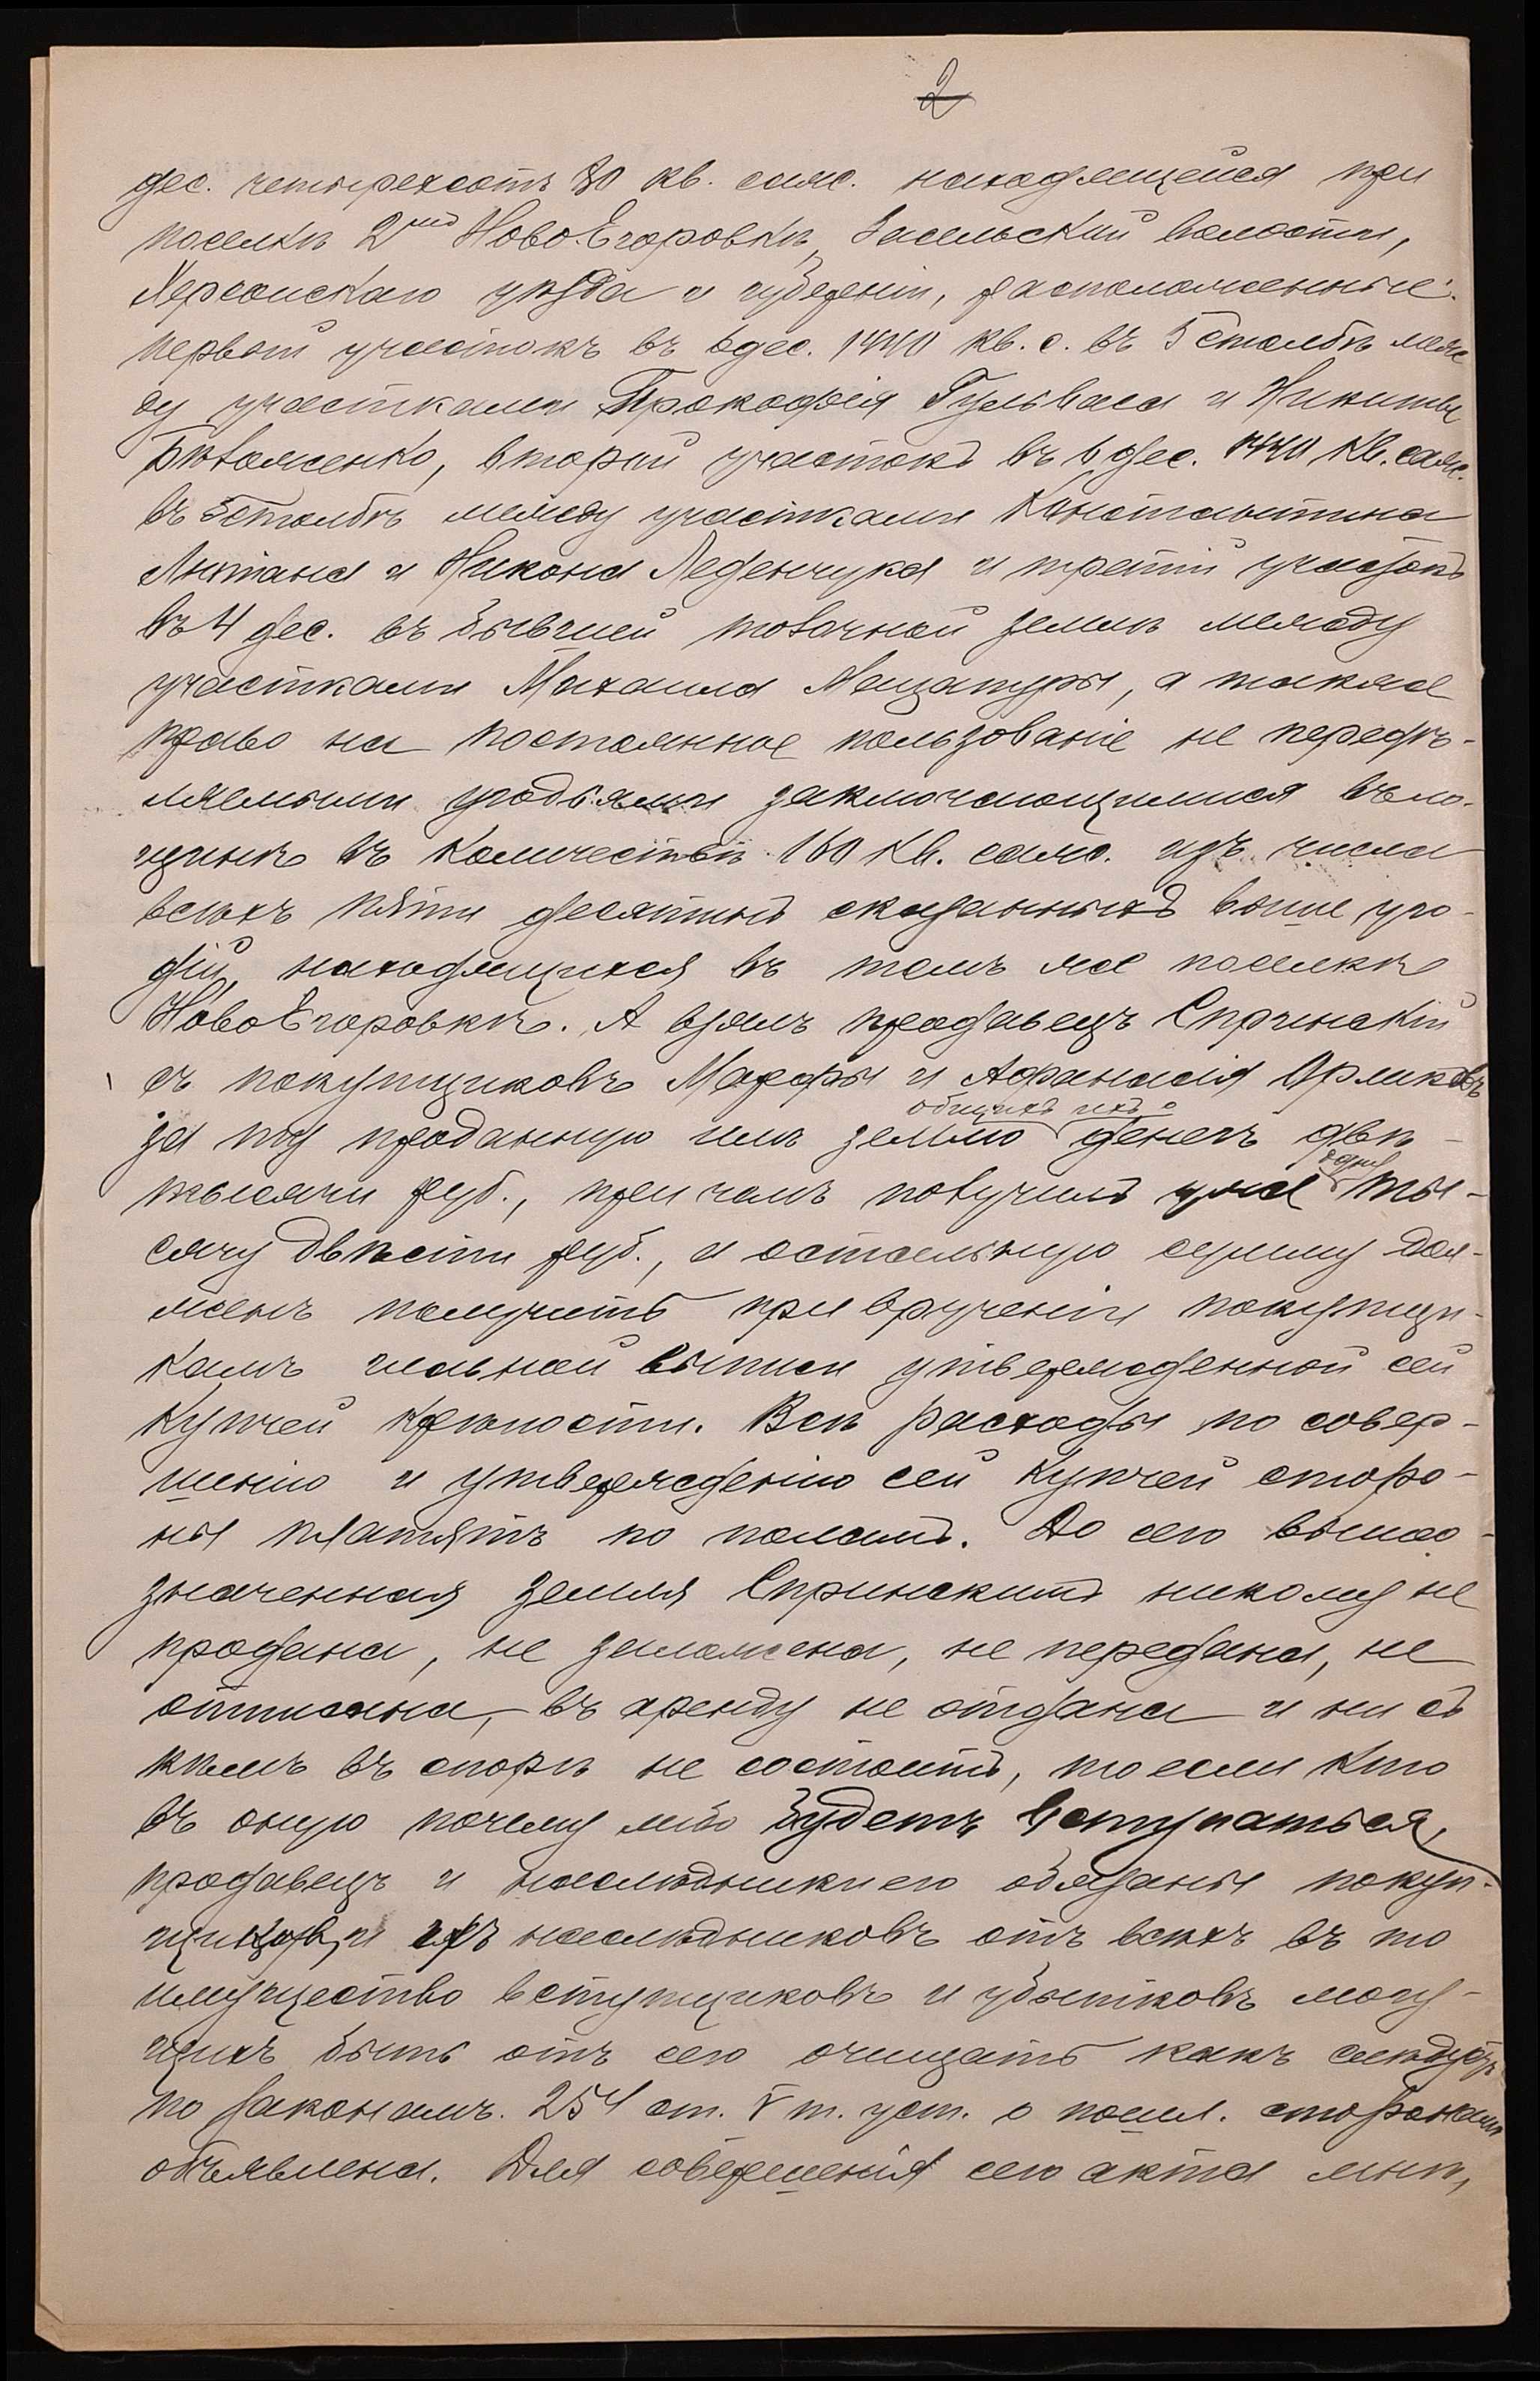 2
дес. четыреста 80 кв. саж. находящейся при
поселкѣ 2мъ Ново-Егоровкѣ, Засельской волости,
Херсонскаго уѣзда и губерніи, расположенные:
первый участокъ въ 6 дес. 1440 кв. с. въ 5 столбѣ меж
ду участками Прокофія Гульваса и Никиты
Бѣвоженко, второй участокъ въ 6 дес. 1440 кв. саж.
въ 5 столбѣ между участками Константина
и Никона Леденчука и третій участокъ
въ 4 дес. въ бывшей толочной земли между
участками Михаила Мацапуры, а также
право на постоянное пользованіе не передѣ-
ляемыми угодьями заключающимися въ ло-
щинѣ въ количествѣ 160 кв. саж. изъ числа
всѣхъ пяти десятинъ сказанныхъ выше уго-
дій, находящихся въ томъ же поселкѣ
Ново Егоровкѣ. А взялъ продавецъ Спринскій
съ покупщиковъ Марфы и Афанасія Орликовъ
за ту проданную имъ землю общихъ ихъ денегъ двѣ
тысячи руб., причемъ получилъ уже одну ты-
сячу двѣсти руб., а остальную сумму дол-
женъ получить при врученіи покупщи-
камъ главной выписи утвержденной сей
купчей крѣпости. Всѣ расходы по совер-
шенію и утвержденію сей купчей сторо-
ны платятъ по поламъ. До сего выше-
значенная земля Спринскимъ никому не
продана, не заложена, не передана, не
отписана, въ аренду не отдана и ни съ
кѣмъ въ спорѣ не состоитъ, то если кто
въ оную почему либо будетъ вступаться,
продавецъ и наслѣдники его обязаны покуп-
щиковъ и ихъ наслѣдниковъ отъ всѣхъ въ то
имущество вступщиковъ и убытковъ могу-
щихъ быть отъ сего очищать какъ слѣдуетъ
по законамъ. 254 ст. V т. уст. о пошл. сторонамъ
объявлена. Для совершенія сего акта мнѣ,